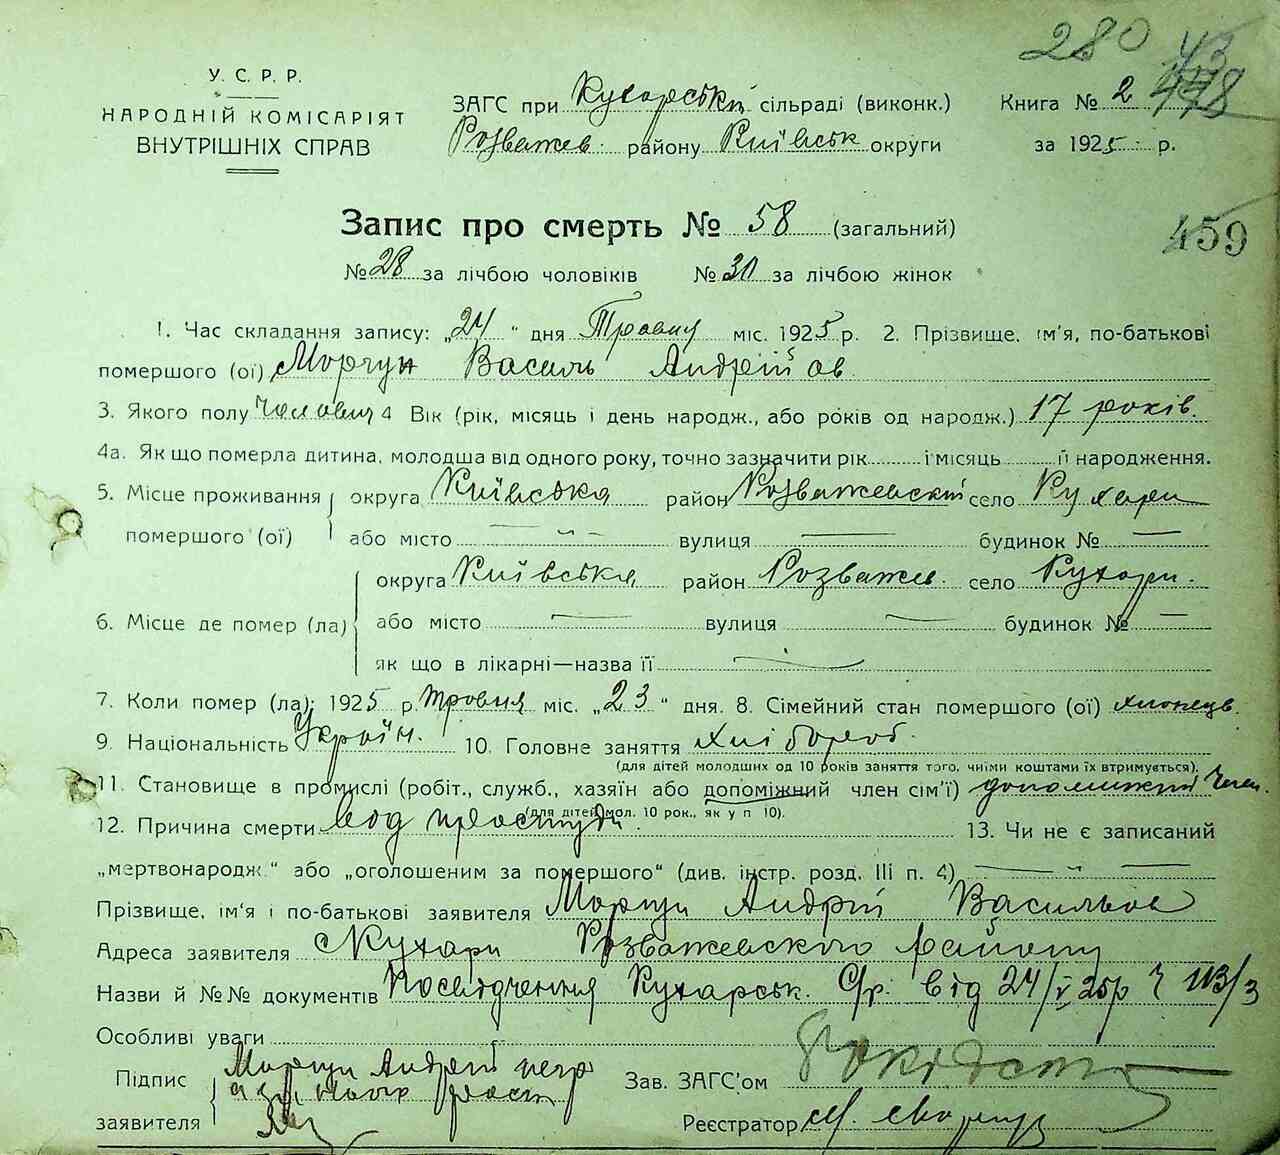 280 43
У. С. Р. Р.
НАРОДНІЙ КОМІСАРІЯТ
ВНУТРІШНІХ СПРАВ
ЗАГС при Кухарській сільраді (виконк.)
Розважев. району Київськ округи
Книга № 2 478
за 1925 р.
Запис про смерть № 58 (загальний)
459
№ 28 за лічбою чоловіків № 30 за лічбою жінок
1. Час складання запису: „24" дня Травня міс. 1925 р. 2. Прізвище, ім'я, по-батькові
помершого (ої) Моргун Василь Андрійов
3. Якого полу Чоловіч 4 Вік (рік, місяць і день народж., або років од народж.) 17 років.
4а. Як що померла дитина, молодша від одного року, точно зазначити рік і місяць її народження.
5. Місце проживання округа Київська район Розважевский село Кухари
помершого (ої) або місто — „ — вулиця — будинок № —
округа Київська район Розважев. село Кухари.
6. Місце де помер (ла) або місто — вулиця — будинок № —
як що в лікарні—назва її —
7. Коли помер (ла): 1925 р. травня міс. „23" дня. 8. Сімейний стан помершого (ої) хлопець.
9. Національність Україн. 10. Головне заняття Хлібороб.
(для дітей молодших од 10 років заняття того, чиїми коштами їх втримується).
11. Становище в промислі (робіт., служб., хазяїн або допоміжний член сім'ї) допоміжний член.
(для дітей мол. 10 рок., як у п 10).
12. Причина смерти вод простуди. 13. Чи не є записаний
„мертвонародж." або „оголошеним за помершого" (див. інстр. розд. III п. 4) — „ —
Прізвище, ім'я і по-батькові заявителя Моргун Андрій Васильов
Адреса заявителя с Кухари Розважевского району
Назви й №№ документів Посвідчення Кухарськ. С/р. від 24/V 25р Ч 113/3
Особливі уваги
Підпис Моргун Андрій негр
заявителя
Зав. ЗАГС'ом
Реєстратор М.